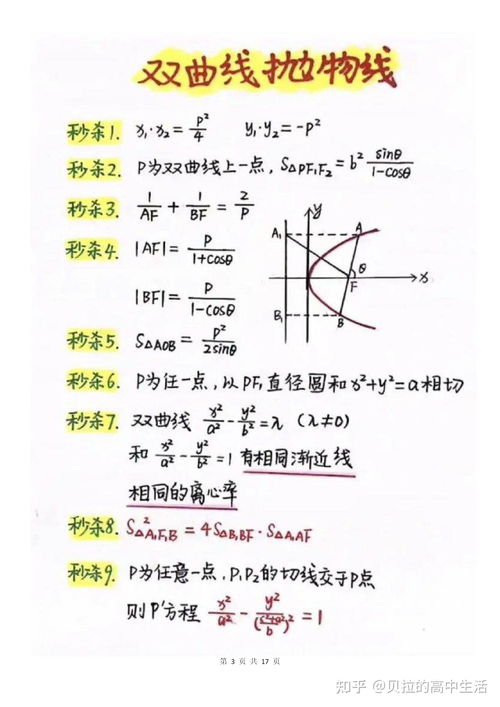 双曲线抛物线
秒杀1. x₁·x₂=p²/4 y₁·y₂=-p²
秒杀2. P为双曲线上一点, S△PF₁F₂=b² sinθ/1-cosθ
秒杀3. 1/AF + 1/BF = 2/P
秒杀4. |AF|= P/1+cosθ
|BF|= P/1-cosθ
A₁ y A
θ
F x
B₁ B
秒杀5. S△AOB= P²/2sinθ
秒杀6. P为任一点, 以PF₁直径圆和x²+y²=a相切
秒杀7. 双曲线 x²/a² - y²/b² = λ (λ≠0)
和 x²/a² - y²/b² = 1 有相同渐近线
相同的离心率
秒杀8. S²△A₁F₁B = 4S△B₁BF · S△A₁AF
秒杀9. P为任意一点, P₁P₂的切线交于P点
则P'方程 x²/a² - y²/( /b)² = 1
第 3 页 共 17 页
知乎 @贝拉的高中生活